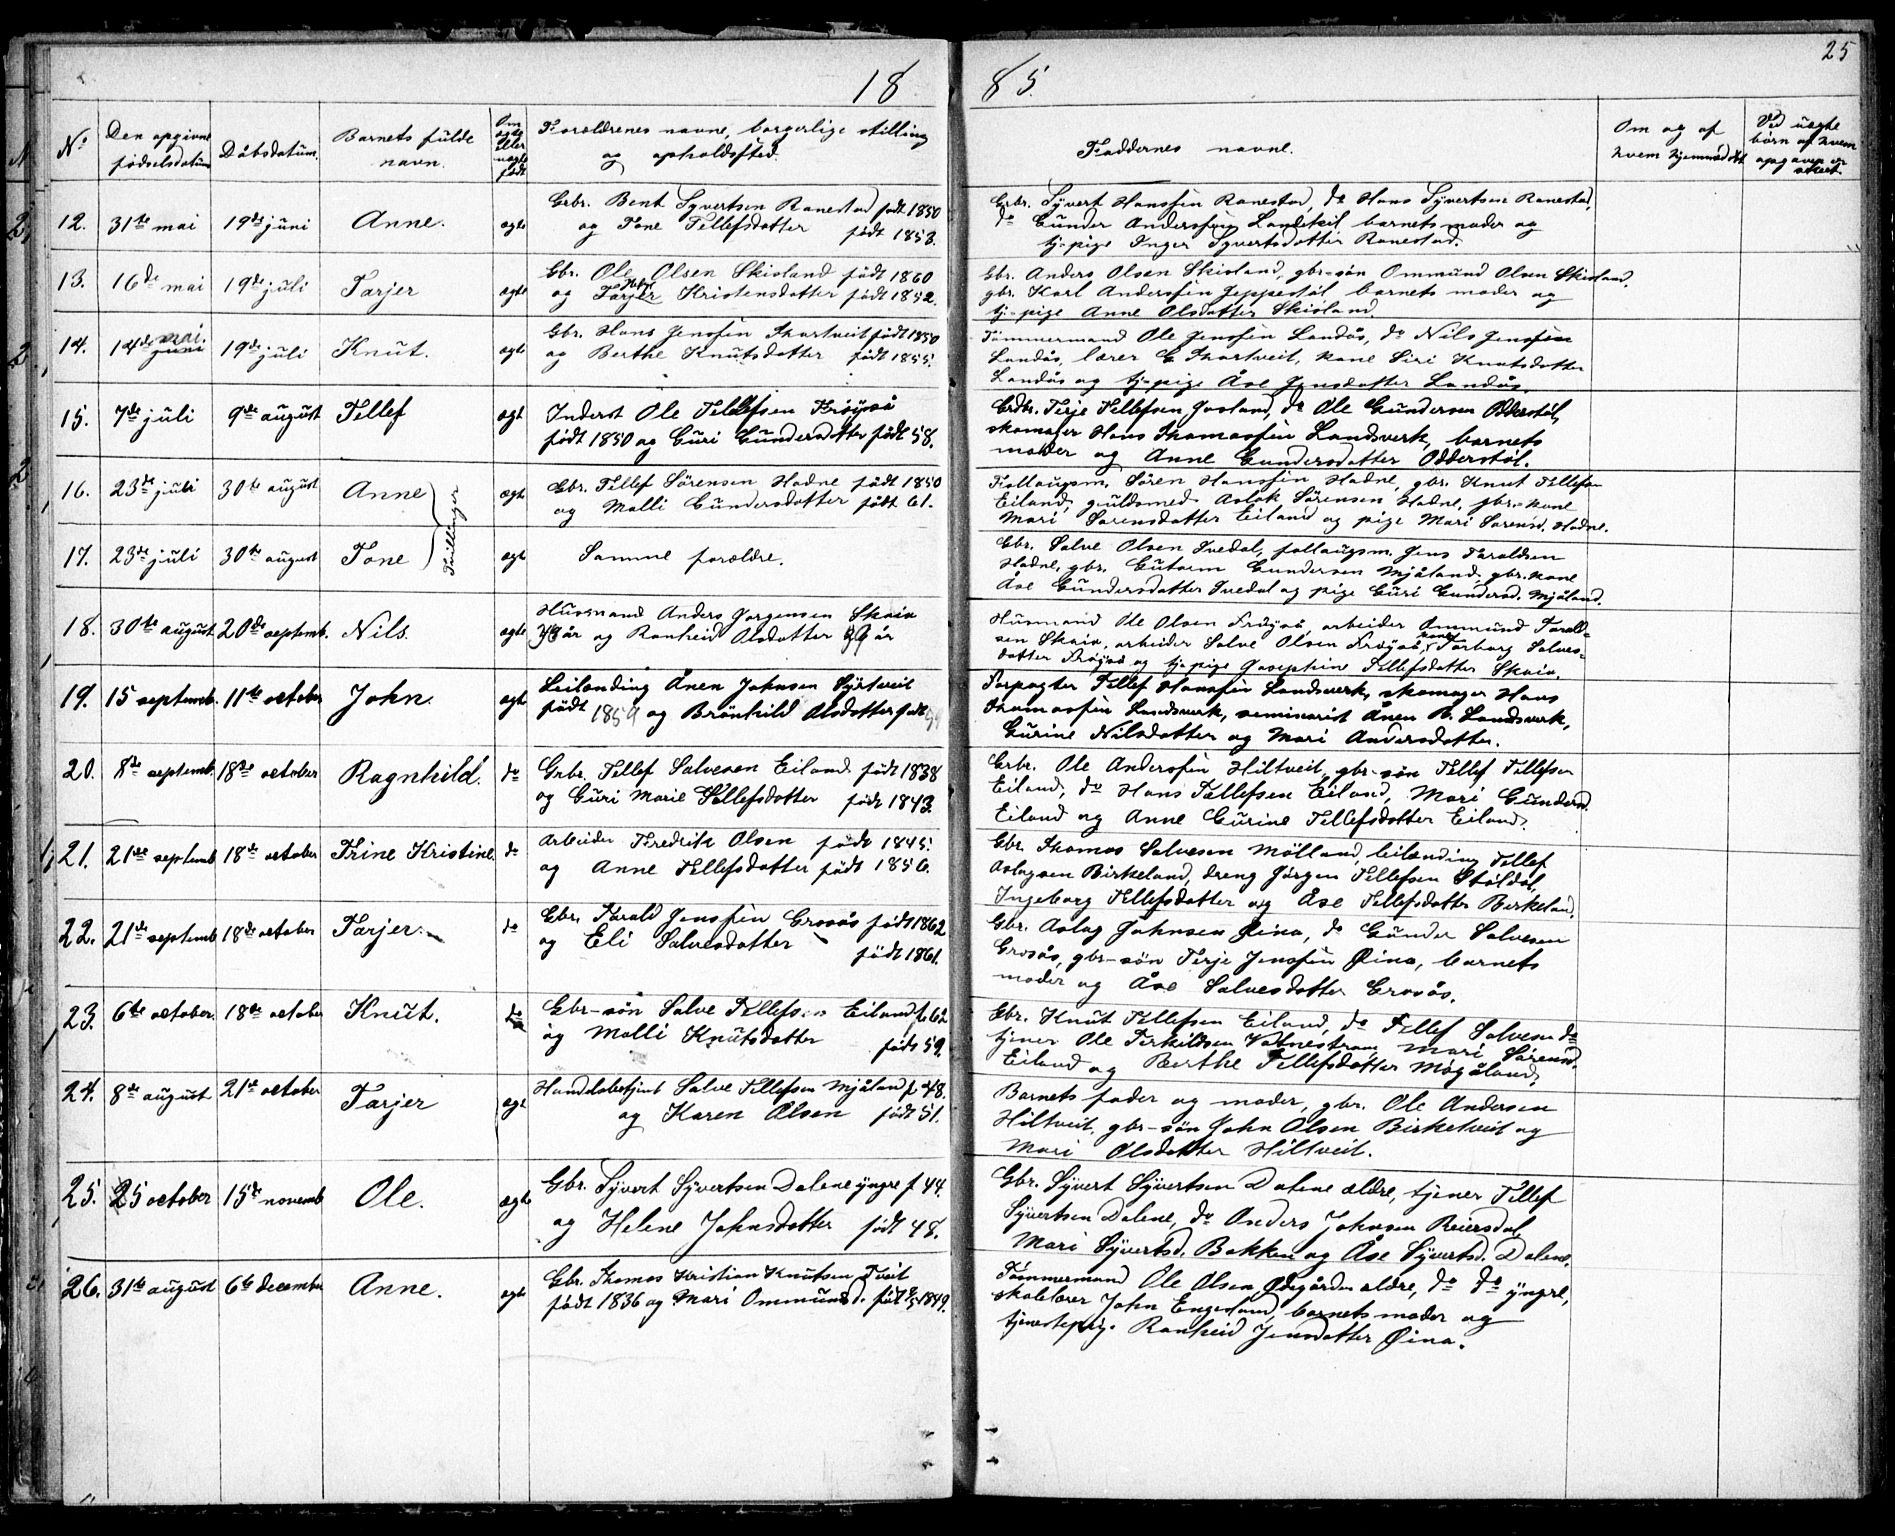 25
18 85.
No Den opgivne fødselsdatum Dåbsdatum. Barnets fulde navn. Om ægte eller uægte født Forældrenes navne, borgerlige stilling og opholdssted.
Faddernes navne. Om og af hvem hjemmedøbt Ved uægte børn af hvem opgaven er
12. 31te mai 19de juni Anne. ægte
Grbr. Bent Syvertsen Ranestad født 1850
og Tone Tellefsdatter født 1853.
Grbr. Syvert Hanssen Ranestad, do Hans Syvertsen Ranestad,
do Gunder Anderssen Landeskil barnets moder og
tj-pige Inger Syvertsdatter Ranestad.
13. 16de mai 19de juli Tarjer ægte
Gbr. Ole Olsen Skisland født 1860
og Tarjer Kristensdatter født 1852.
Gbr. Anders Olsen Skisland, gbr-søn Ommund Olsen Skisland,
gbr. Karl Anderssen Jeppestøl barnets moder og
tj-pige Anne Olsdatter Skisland.
14. 14de juni mai. 19de juli Knut. ægte
Gbr. Hans Jenssen Thortveit født 1850
og Berthe Knutsdatter født 1855.
Tømmermand Ole Jenssen Landås, do Nils Jenssen
Landås, lærer G Thortveit, kone Siri Knutsdatter
Landås og tj-pige Åse Jensdatter Landås.
15. 7de juli 9de august Tellef ægt
Inderst Ole Tellefsen Frøyså
født 1850 og Guri Gundersdatter født 58.
Grbr. Terje Tellefsen Josland, do Ole Gundersen Odderstøl,
skomager Hans Thomassen Landsverk, barnets
moder og Anne Gundersdatter Odderstøl.
16. 23de juli 30te august Anne ægte
Gbr. Tellef Sørensen Hodne født 1850
og Malli Gundersdatter født 61.
Follaugsm. Søren Hanssen Hodne, gbr. Knut Tellefsen
Eiland, guldsmed Aslak Sørensen Hodne, gbr-kone
Mari Sørensdatter Eiland og pige Mari Sørensd. Hodne.
Tvillinger
17. 23de juli 30te august Tone ægt
Samme forældre.
Gbr. Salve Olsen Ivedal, follaugsm. Jens Taraldsen
Hodne, gbr. Gutorm Gundersen Mjåland, gbr-kone
Åse Gundersdatter Ivedal og pige Guri Gundersd. Mjåland.
18. 30te august 20de septemb. Nils. ægte
Husmand Anders Jørgensen Skaia
43 år og Ranheid Olsdatter 39 år
Husmand Ole Olsen Frøyså, arbeider Ommund Tarald-
sen Skaia, arbeider Salve Olsen Frøyså, kone Torborg Salves-
datter Frøyså og tj-pige Josephine Tellefsdatter Skaia.
19. 15 septemb. 11te october John. ægt
Leilænding Ånen Johnsen Syrtveit
født 1859 og Brønhild Olsdatter født 59
Forpagter Tellef Hanssen Landsverk, skomager Hans
Thomassen Landsverk, seminarist Ånen B. Landsverk,
Gurine Nilsdatter og Mari Andersdatter.
20. 8de septemb. 18de october Ragnhild. do
Grbr. Tellef Salvesen Eiland født 1838
og Guri Marie Tellefsdatter født 1843.
Grbr. Ole Anderssen Hiltveit, gbr-søn Tellef Tellefsen
Eiland, do Hans Tellefsen Eiland, Mari Gundersd.
Eiland og Anne Gurine Tellefsdatter Eiland.
21. 21de septemb 18de october Trine Kristine. do
Arbeider Fredrik Olsen født 1845.
og Anne Tellefsdatter født 1856.
Gbr. Thomas Salvesen Mølland, leilænding Tellef
Aslagsen Birkeland, dreng Jørgen Tellefsen Støldal,
Ingeborg Tellefsdatter og Åse Tellefsdatter Birkeland.
22. 21de septemb 18de october Tarjer. do
Gbr. Tarald Jenssen Grosås født 1862
og Eli Salvesdatter født 1861.
Gbr. Aslag Johnsen Øina, do Gunder Salvesen
Grosås, gbr-søn Terje Jenssen Øina, barnets
moder og Åse Salvesdatter Grosås.
23. 6te october. 18de october Knut. do
Gbr-søn Salve Tellefsen Eiland f. 62
og Malli Knutsdatter født 59.
Gbr. Knut Tellefsen Eiland, do Tellef Salvesen do
tjener Ole Terkildsen Vatnestrøm Mari Sørensd.
Eiland og Berthe Tellefsdatter Mogåland.
24. 8de august 21de october Tarjer ægt
Handelsbetjent Salve Tellefsen Mjåland f. 48.
og Karen Olsen født 51.
Barnets fader og moder, gbr. Ole Andersen
Hiltveit, gbr-søn John Olsen Birketveit og
Mari Olsdatter Hiltveit.
25. 25 october 15de novemb Ole. ægte
Gbr. Syvert Syvertsen Dalene yngre f 44.
og Helene Johnsdatter født 48.
Gbr. Syvert Syvertsen Dalene ældre, tjener Tellef
Syvertsen Dalene, do Anders Johnsen Reiersdal,
Mari Syvertsd. Bakken og Åse Syvertsd. Dalene.
26. 31te august 6te december Anne. ægt
Gbr. Thomas Kristian Knutsen Tveit
født 1836 og Mari Ommundsd. født 1849.
Tømmermand Ole Olsen Ødegården ældre, do do yngre,
skolelærer John Engesland, barnets moder og
tjenestepige Ranheid Jensdatter Øina.